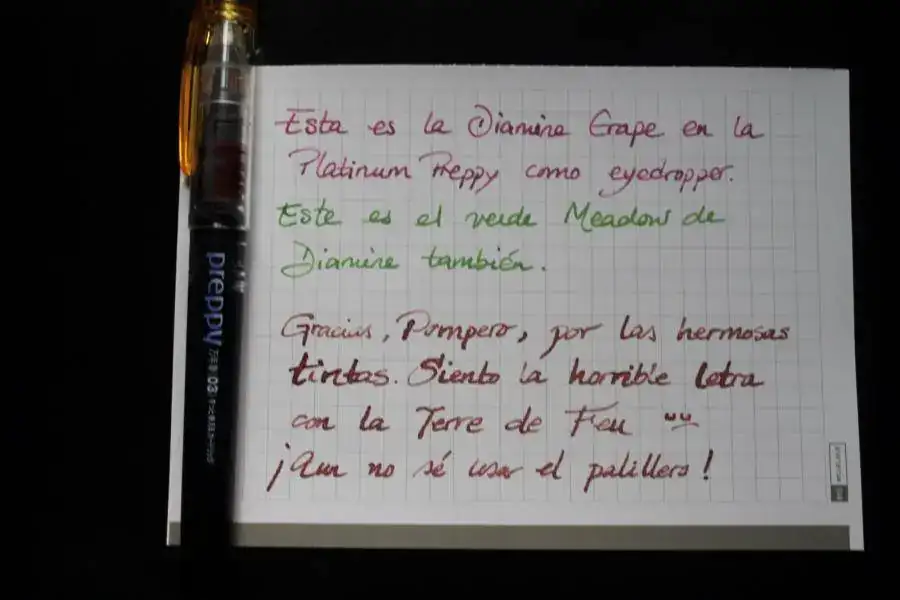 Esta es la Diamine Grape en la
Platinum Preppy como eyedropper.
Este es el verde Meadow de
Diamine también.
Gracias, Pompero, por las hermosas
tintas. Siento la horrible letra
con la Terre de Feu
¡Aun no sé usar el palillero!
preppy
03